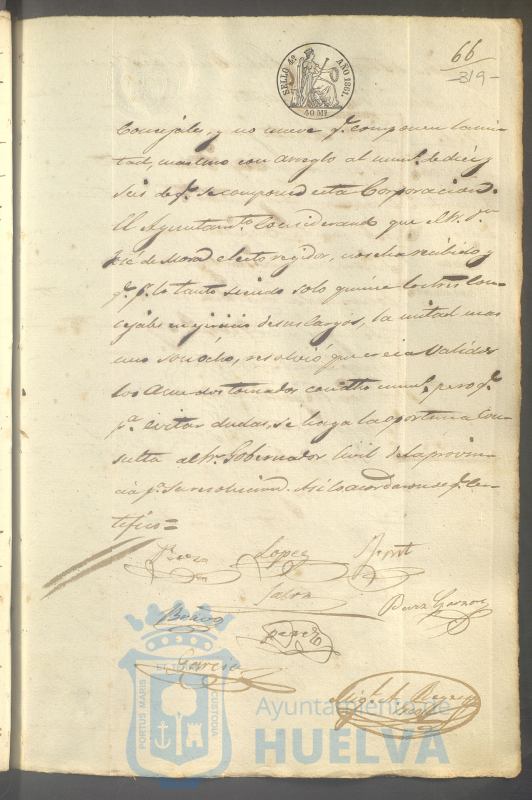 SELLO 4º AÑO 1861.
40 Ms
66
319-
Concejales, y no nueve qe. componen la mi-
tad, mas uno con arreglo al numo. de diez y
seis de qe. se compone esta Corporacion.
El Ayuntamto. considerando que el Sr. Dn.
José de Mora electo regidor, no se ha recibido y
qe. pr. lo tanto siendo solo quince los tres Con-
cejales en egercicio de sus cargos, la mitad mas
uno son ocho, resolvió que creia validos
los acuerdos tomados con dho numo., pero qe.
pa. evitar dudas, se haga la oportuna Con-
sulta al Sr. Gobernador Civil de la provin-
cia pa. su resolucion. Asi lo acordaron de qe. cer-
tifico=
Perez Lopez
Garcia
PORTUS MARIS
CUSTODIA
Ayuntamiento de
HUELVA